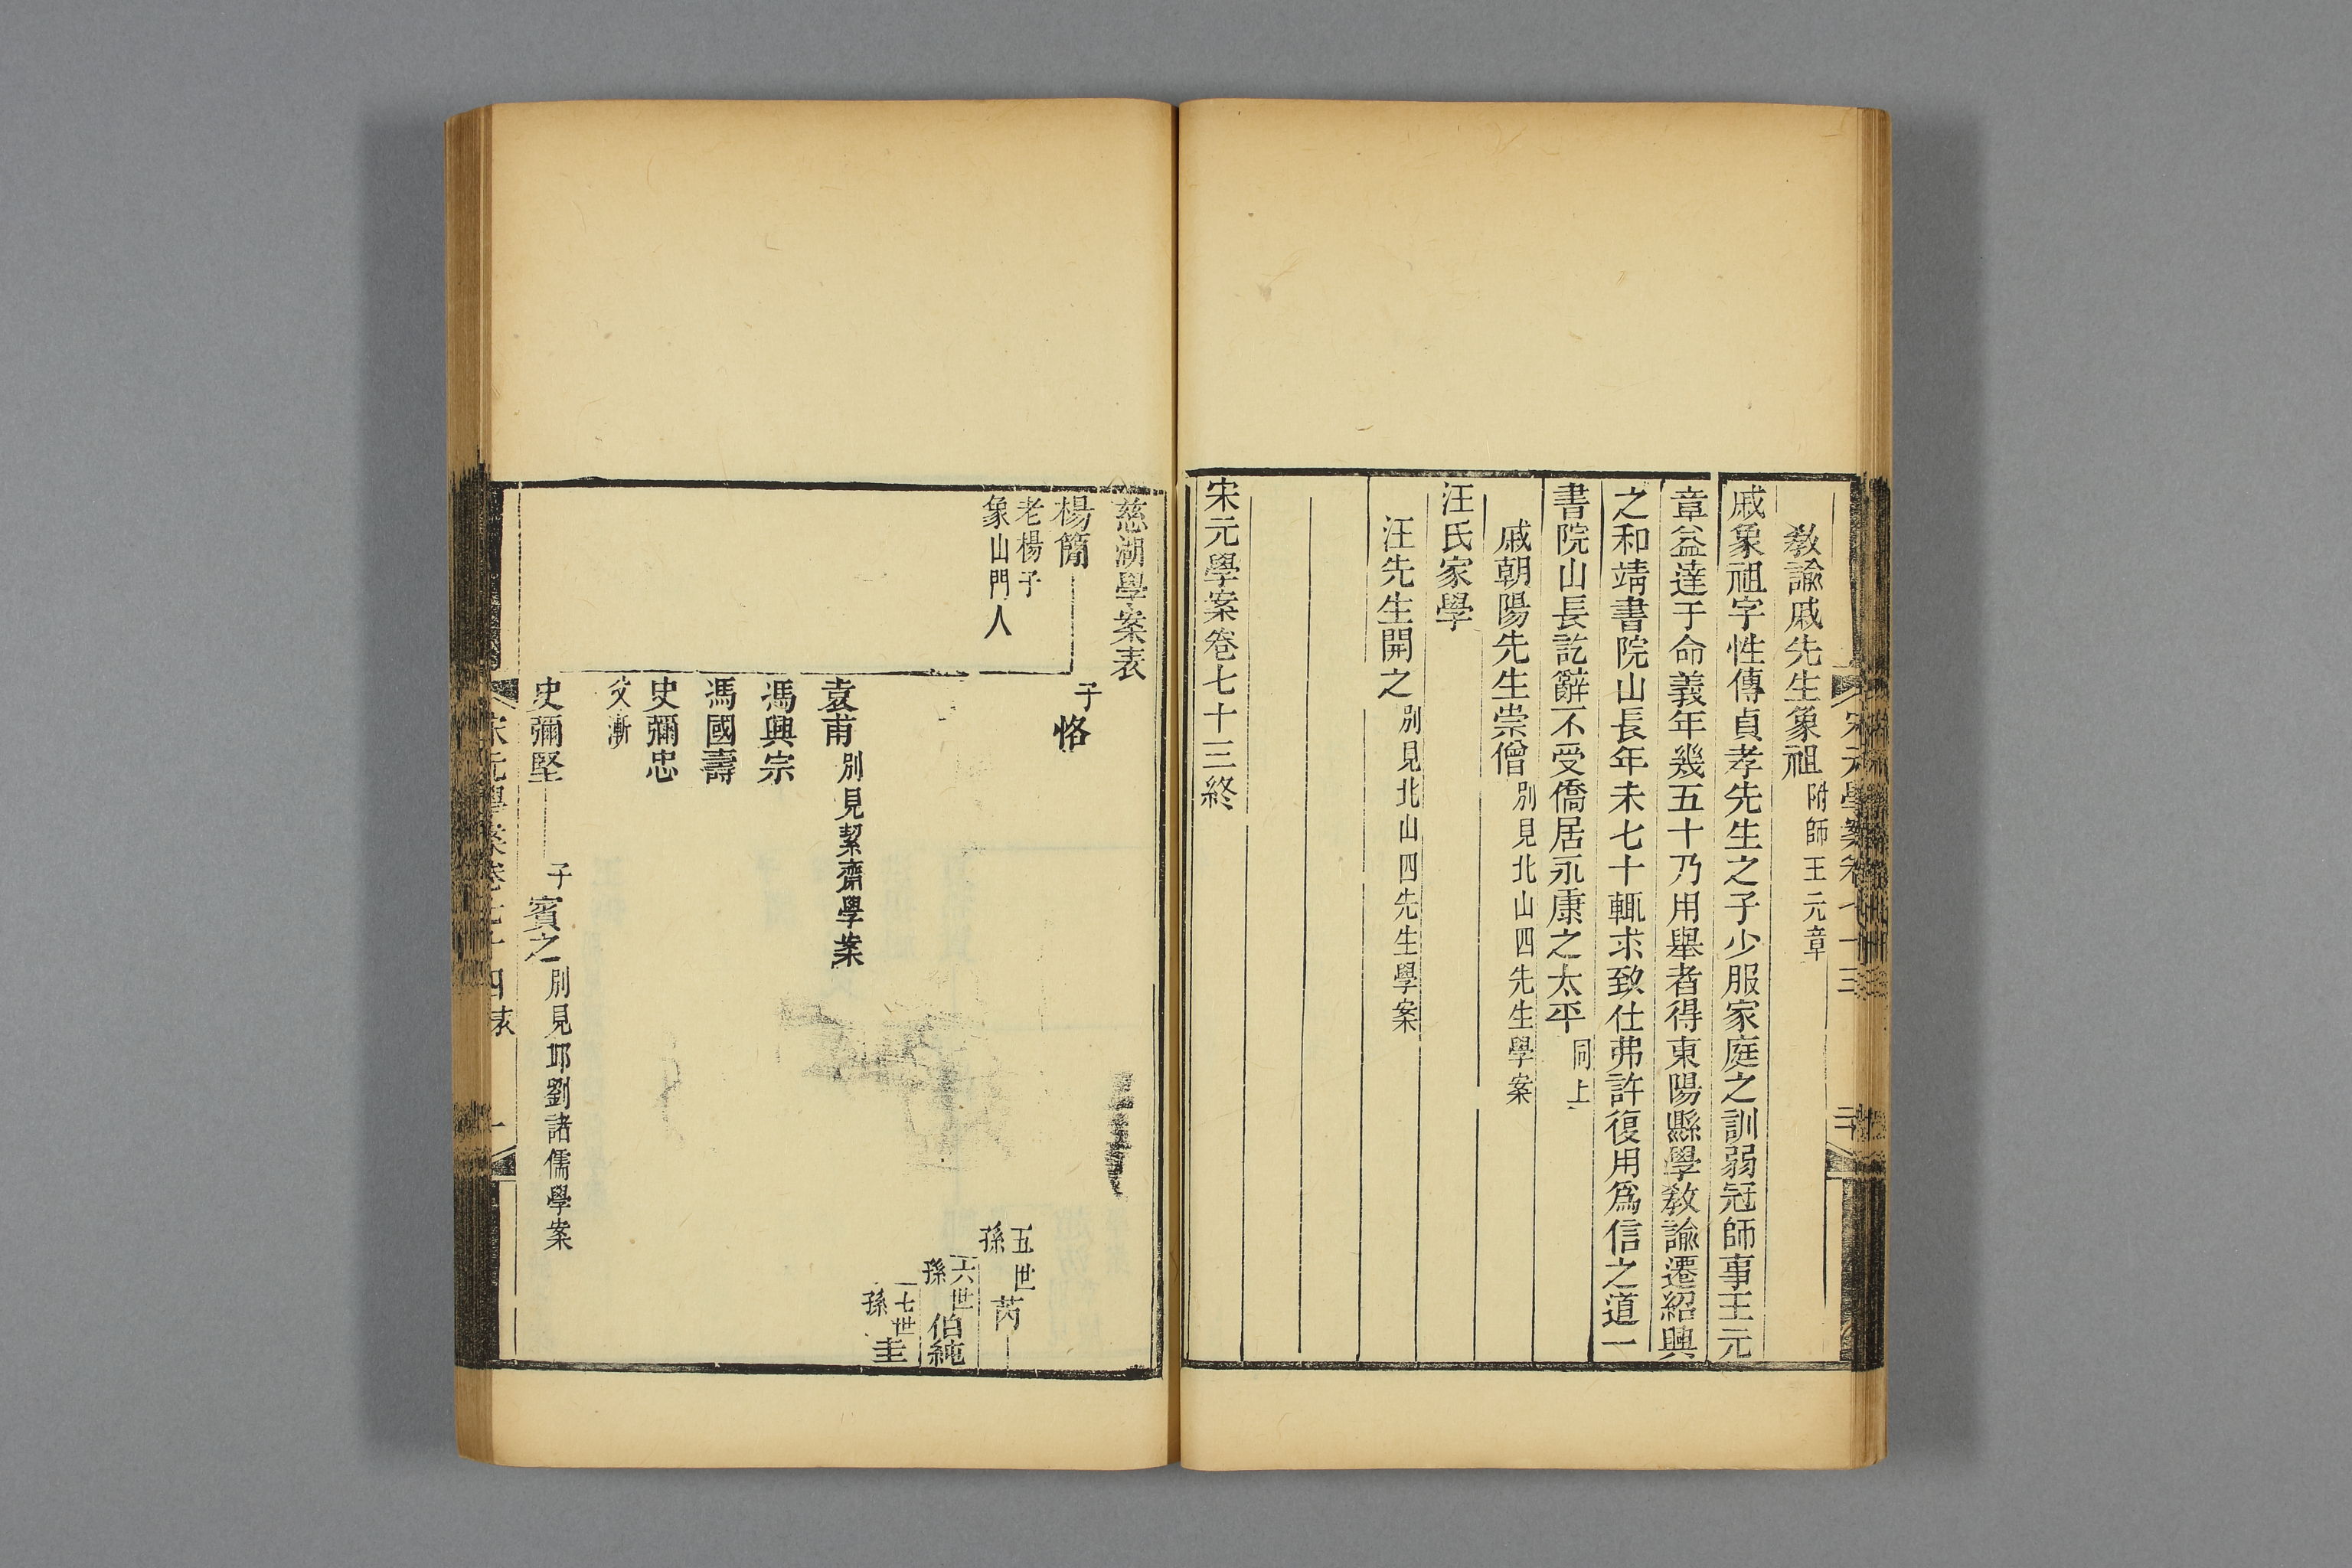 教諭戚先生象祖附師王元章
戚象祖字性傳貞孝先生之子少服家庭之訓弱冠師事王元
章益達于命義年幾五十乃用舉者得東陽縣學教諭遷紹興
之和靖書院山長年未七十輒求致仕弗許復用爲信之道一
書院山長訖辭不受僑居永康之太平同上
戚朝陽先生崇僧別見北山四先生學案
汪氏家學
汪先生開之別見北山四先生學案
宋元學案卷七十三終
慈湖學案表
楊簡
老楊子
象山門人
子恪
五世孫芮
六世孫伯純
七世孫圭
袁甫別見絜齋學案
馮興宗
馮國壽
史彌忠
父漸
史彌堅
子賓之別見邱劉諸儒學案